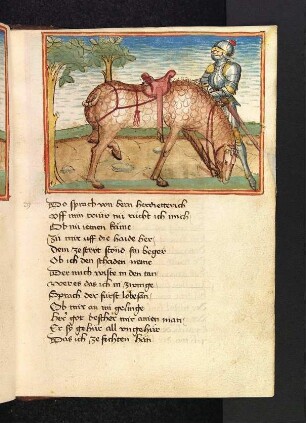 Do sprach von bern her dietterich
Vff min trüw nü rückt ich mich
Ob mir iemen kúme
Zü mir vff die haide her
Dem ze strit stönd sin beger
Ob ich den schaden neme
Der mich wiste in den tan
Wer es das ich in zwinge
Sprach der fürst lobesan
Ob mir an im gelinge
Her got bescher mir ainen man
Er sy gehür ald vngehür
Das ich ze fechten han